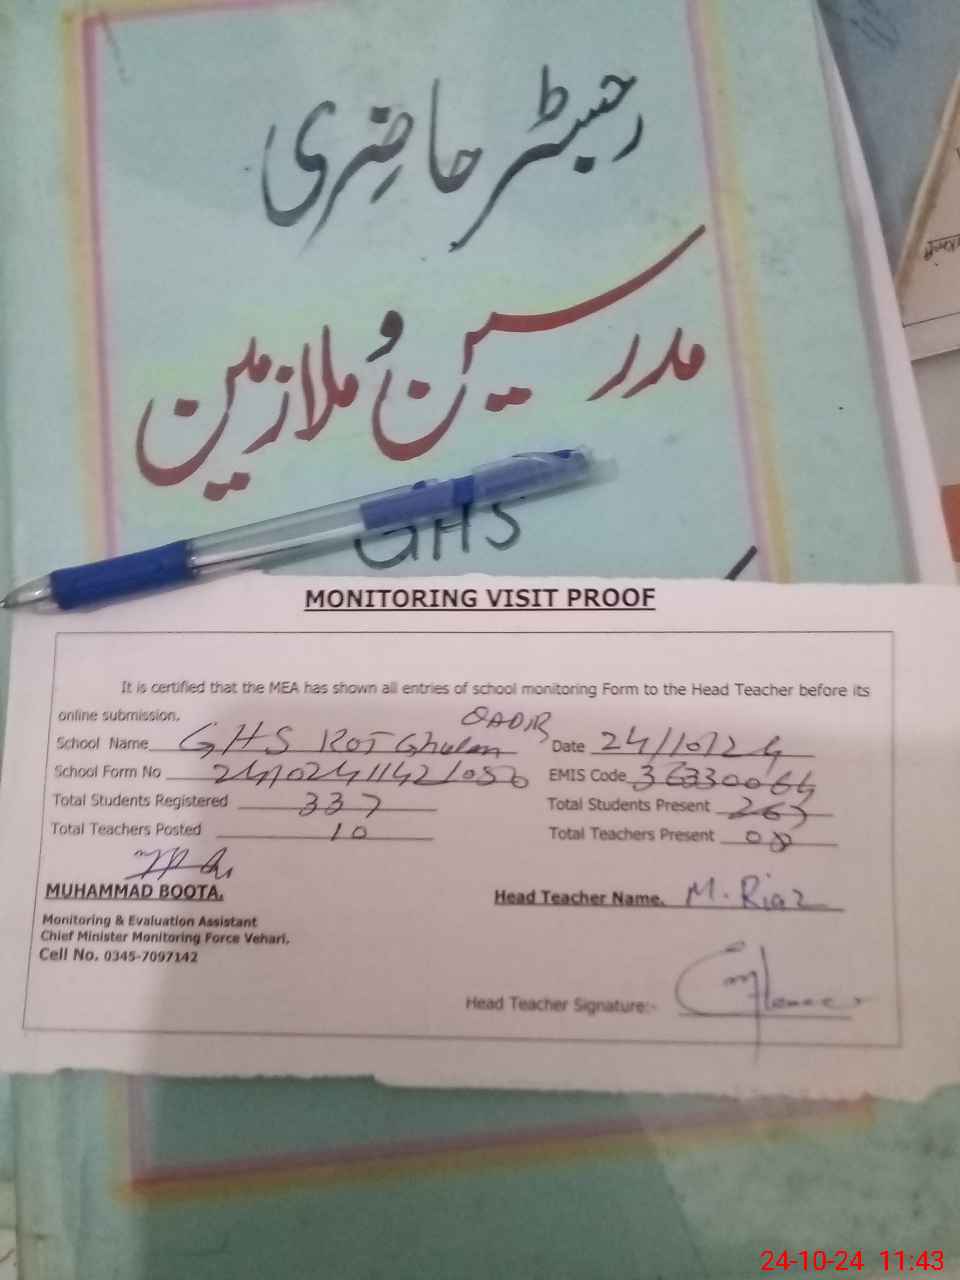 رجسٹر حاضری
مدرسین و ملازمین
GHS
MONITORING VISIT PROOF
It is certified that the MEA has shown all entries of school monitoring Form to the Head Teacher before its
online submission.
School Name GHS Kot Ghulam QADIR Date 24/10/24
School Form No EMIS Code 36330064
Total Students Registered 337 Total Students Present 267
Total Teachers Posted 10 Total Teachers Present 08
MUHAMMAD BOOTA. Head Teacher Name. M. Riaz
Monitoring & Evaluation Assistant
Chief Minister Monitoring Force Vehari.
Cell No. 0345-7097142
Head Teacher Signature:-
24-10-24 11:43